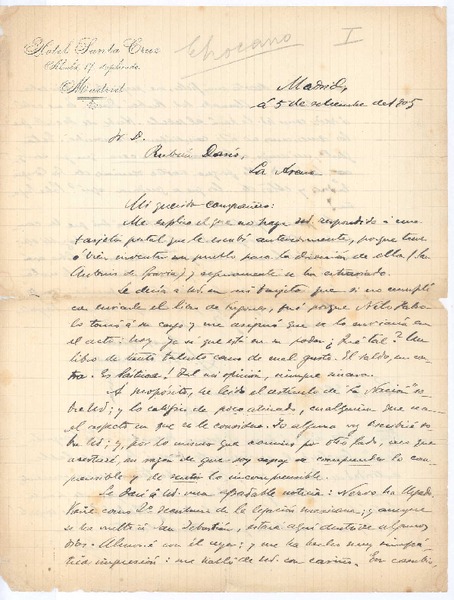 Chocano I
Hotel Santa Cruz
Madrid
Madrid,
á 5 de setiembre del 1905
Sr D.
Rubén Darío,
La Arena
Mi querido compañero:
Me explico el que no haya Ud. respondido á una
tarjeta postal que le escribí anteriormente, porque
inventar un pueblo para la dirección de ella (San
Antonio de ) y seguramente se ha extraviado.
Le decía á Ud. en mi tarjeta que si no cumplí
con enviarle el libro de , fué porque
lo tomó á su cargo y me aseguró que se lo enviaría en
el acto: hoy sé que está en su poder. ¿Qué tal? Un
libro de tanto talento como de mal gusto. El saldo, en con-
tra. Es lástima! Tal mi opinión, siempre sincera.
A propósito, he leído el artículo de "La Nación" so-
bre Ud; y lo califico de poco atinado,
el respeto en que se le considera. Yo alguna vez escribiré so-
bre Ud; y, por lo mismo que por otro lado, creo que
acertaré, en razón de que soy capaz de comprender lo com-
prensible y de sentir lo incomprensible.
Le daré á Ud. una agradable noticia: Nervo ha llegado
como 2º Secretario de la legación mexicana; y aunque
se ha vuelto á San Sebastián, estará aquí dentro de algunos
días. Almorcé con él ayer; y me ha hecho muy simpá-
tica impresión: me habló de Ud. con cariño. En cambio,